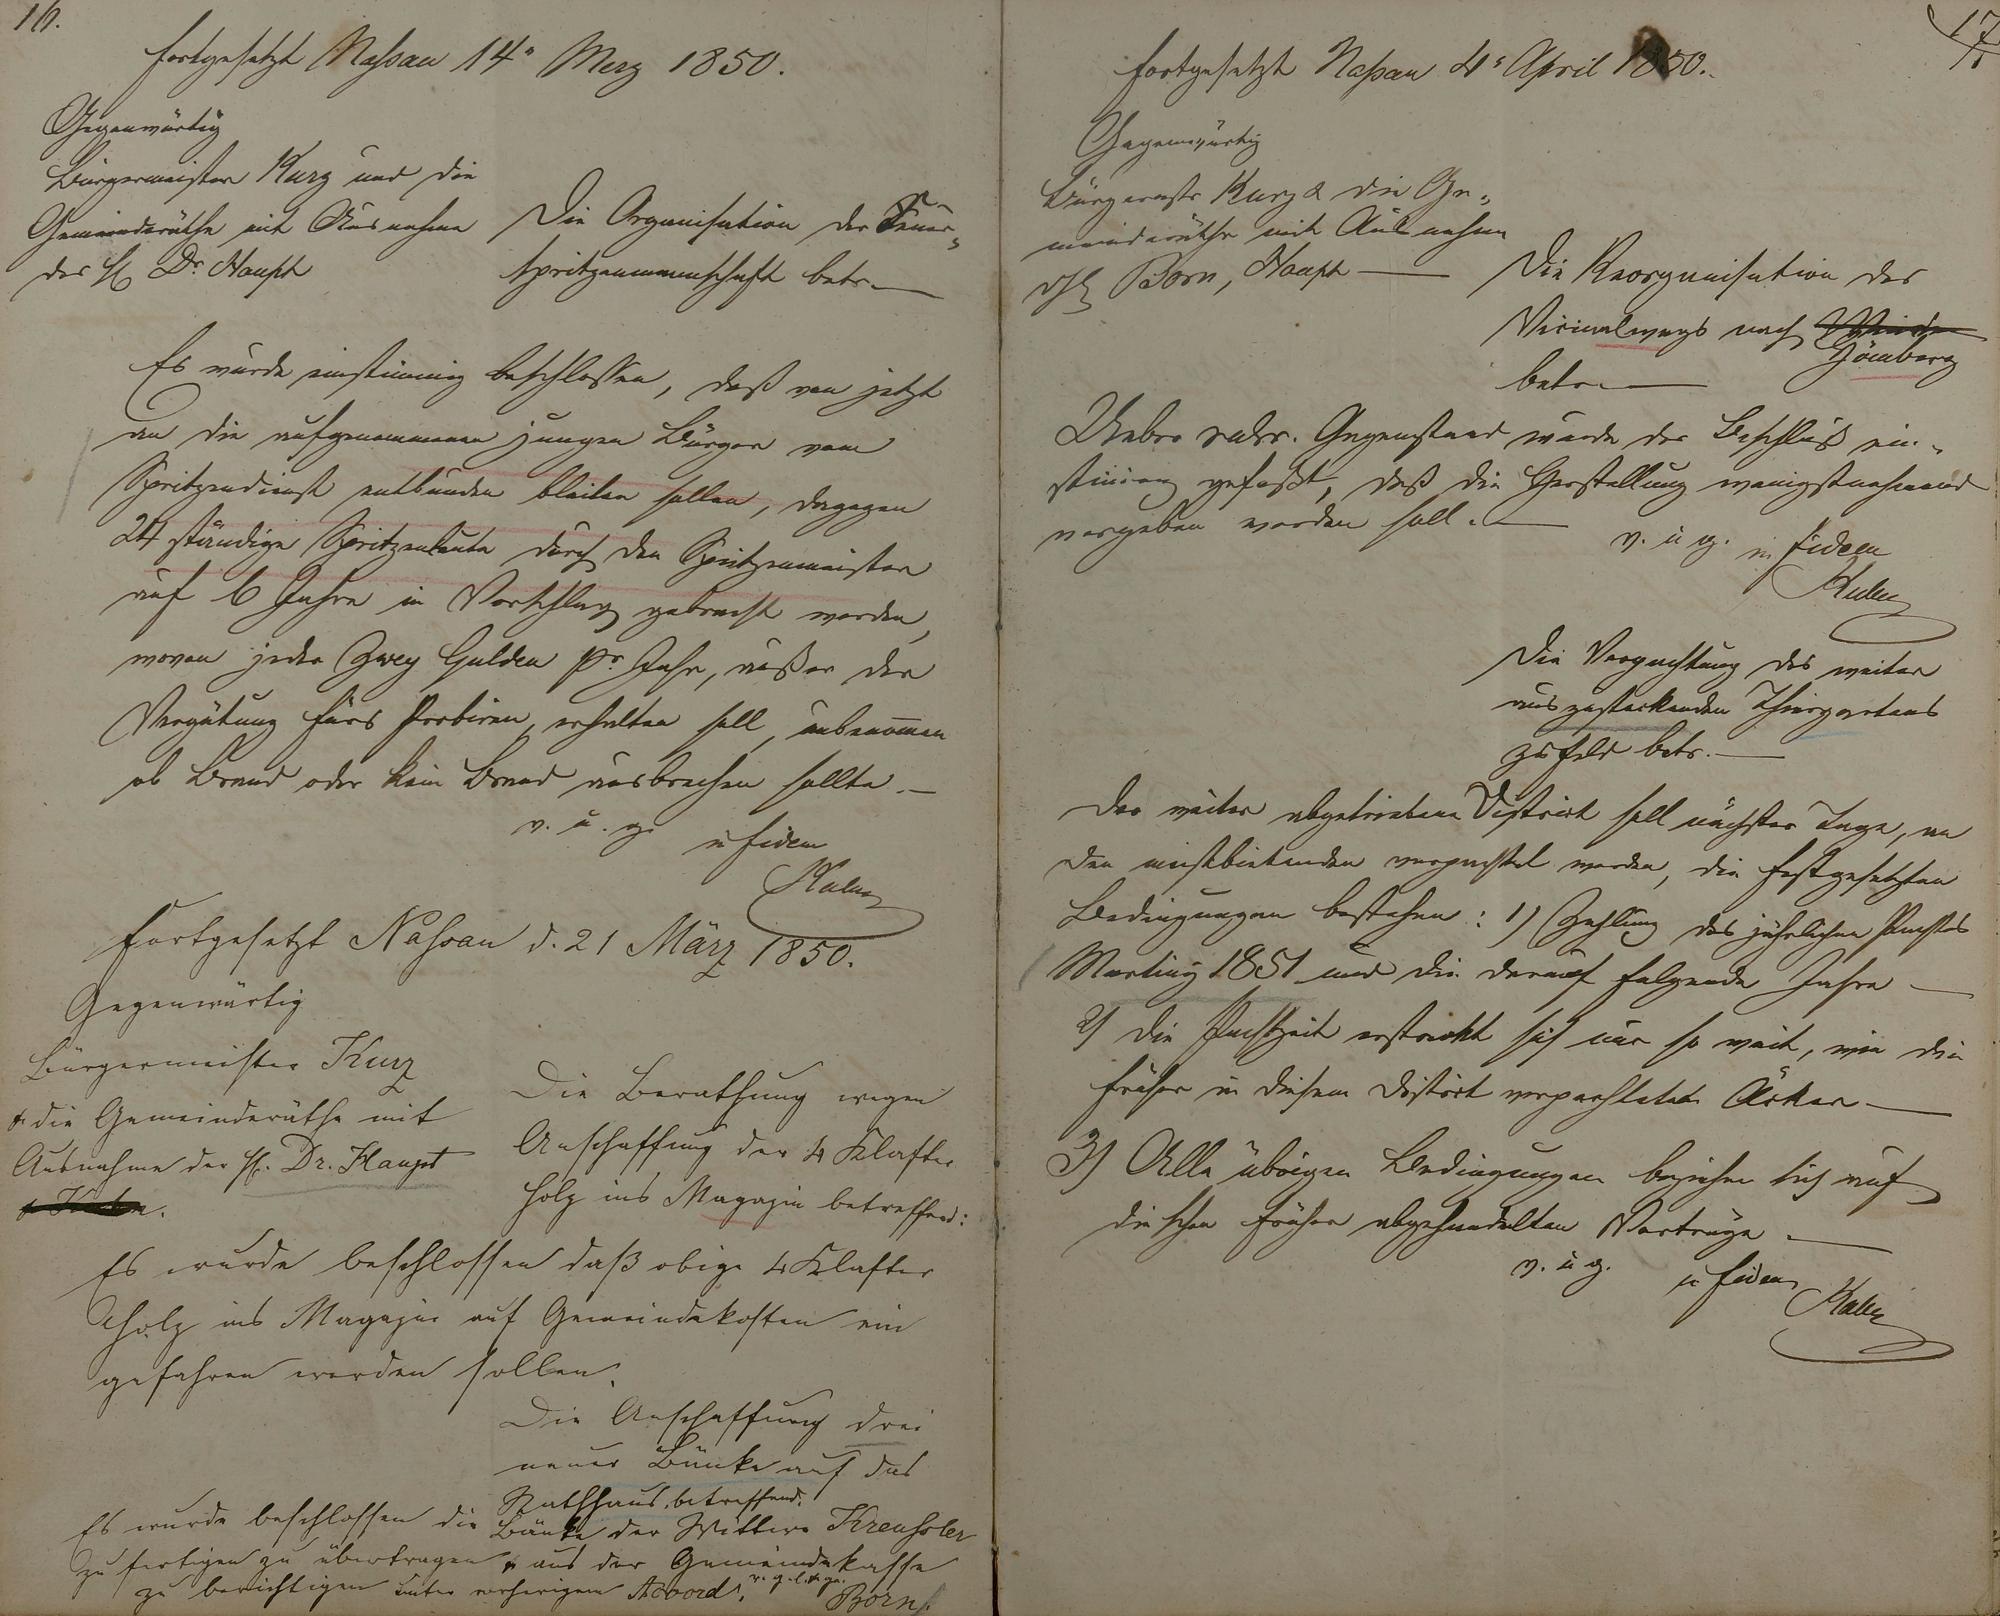 16.
fortgesetzt Nassau 14n Merz 1850.
Gegenwärtig
Bürgermeister Kurz und die
Gemeinderäthe mit Ausnahme
des H. Dr. Haupt
Die Organisation der Feuer-
spritzenmannschaft betr.
Es wurde einstimmig beschlossen, daß von jetzt
an die aufgenommenen jungen Bürger vom
Spritzendienst entbunden bleiben sollen, dagegen
24 ständige Spritzenleute durch den Spritzenmeister
auf 6 Jahre in Vorschlag gebracht werden,
wovon jeder Zwey Gulden pr. Jahr, außer der
Vergütung fürs Probiren, erhalten soll, unbenommen
ob Brand oder kein Brand ausbrechen sollte.
v. u. g.
in fidem
Fortgesetzt Nassau d. 21 März 1850.
Gegenwärtig
Bürgermeister Kurz
& die Gemeinderäthe mit
Ausnahme der H. Dr. Haupt
Die Berathung wegen
Anschaffung der 4 Klafter
Holz ins Magazin betreffend:
Es wurde beschlossen daß obige 4 Klafter
Holz ins Magazin auf Gemeindekosten ein
gefahren werden sollen.
Die Anschaffung drei
neuer Bänke auf das
Rathhaus betreffend.
Es wurde beschlossen die Bänke der Wittwe Kreusler
zu fertigen zu übertragen & aus der Gemeindekasse
zu berichtigen unter vorherigem Accord.
v. g. l. & ge.
Born
17
fortgesetzt Nassau 4n April 1850.
Gegenwärtig
Bürgermstr Kurz & die Ge-
meinderäthe mit Ausnahme
d H Born, Haupt
Die Reorganisation des
Vicinalwegs nach
Hömberg
betr.
Ueber rubr. Gegenstand wurde der Beschluß ein-
stimmig gefaßt, daß die Herstellung wenigstnehmend
vergeben werden soll.
v. u. g. in fidem
Die Verpachtung des weiter
auszustockenden Thiergartens
zu Feld betr.
Der weiter abgetriebene District soll nächster Tage, an
den meistbietenden verpachtet werden, die festgesetzten
Bedingungen bestehen: 1) Zahlung des jährlichen Pachtes
Martiny 1851 und die darauf folgende Jahre
2) die Pachtzeit erstreckt sich nur so weit, wie die
früher in diesem District verpachteten Äcker
3) Alle übrigen Bedingungen beziehen sich auf
die schon früher abgehandelten Verträge.
v. u. g. in fidem